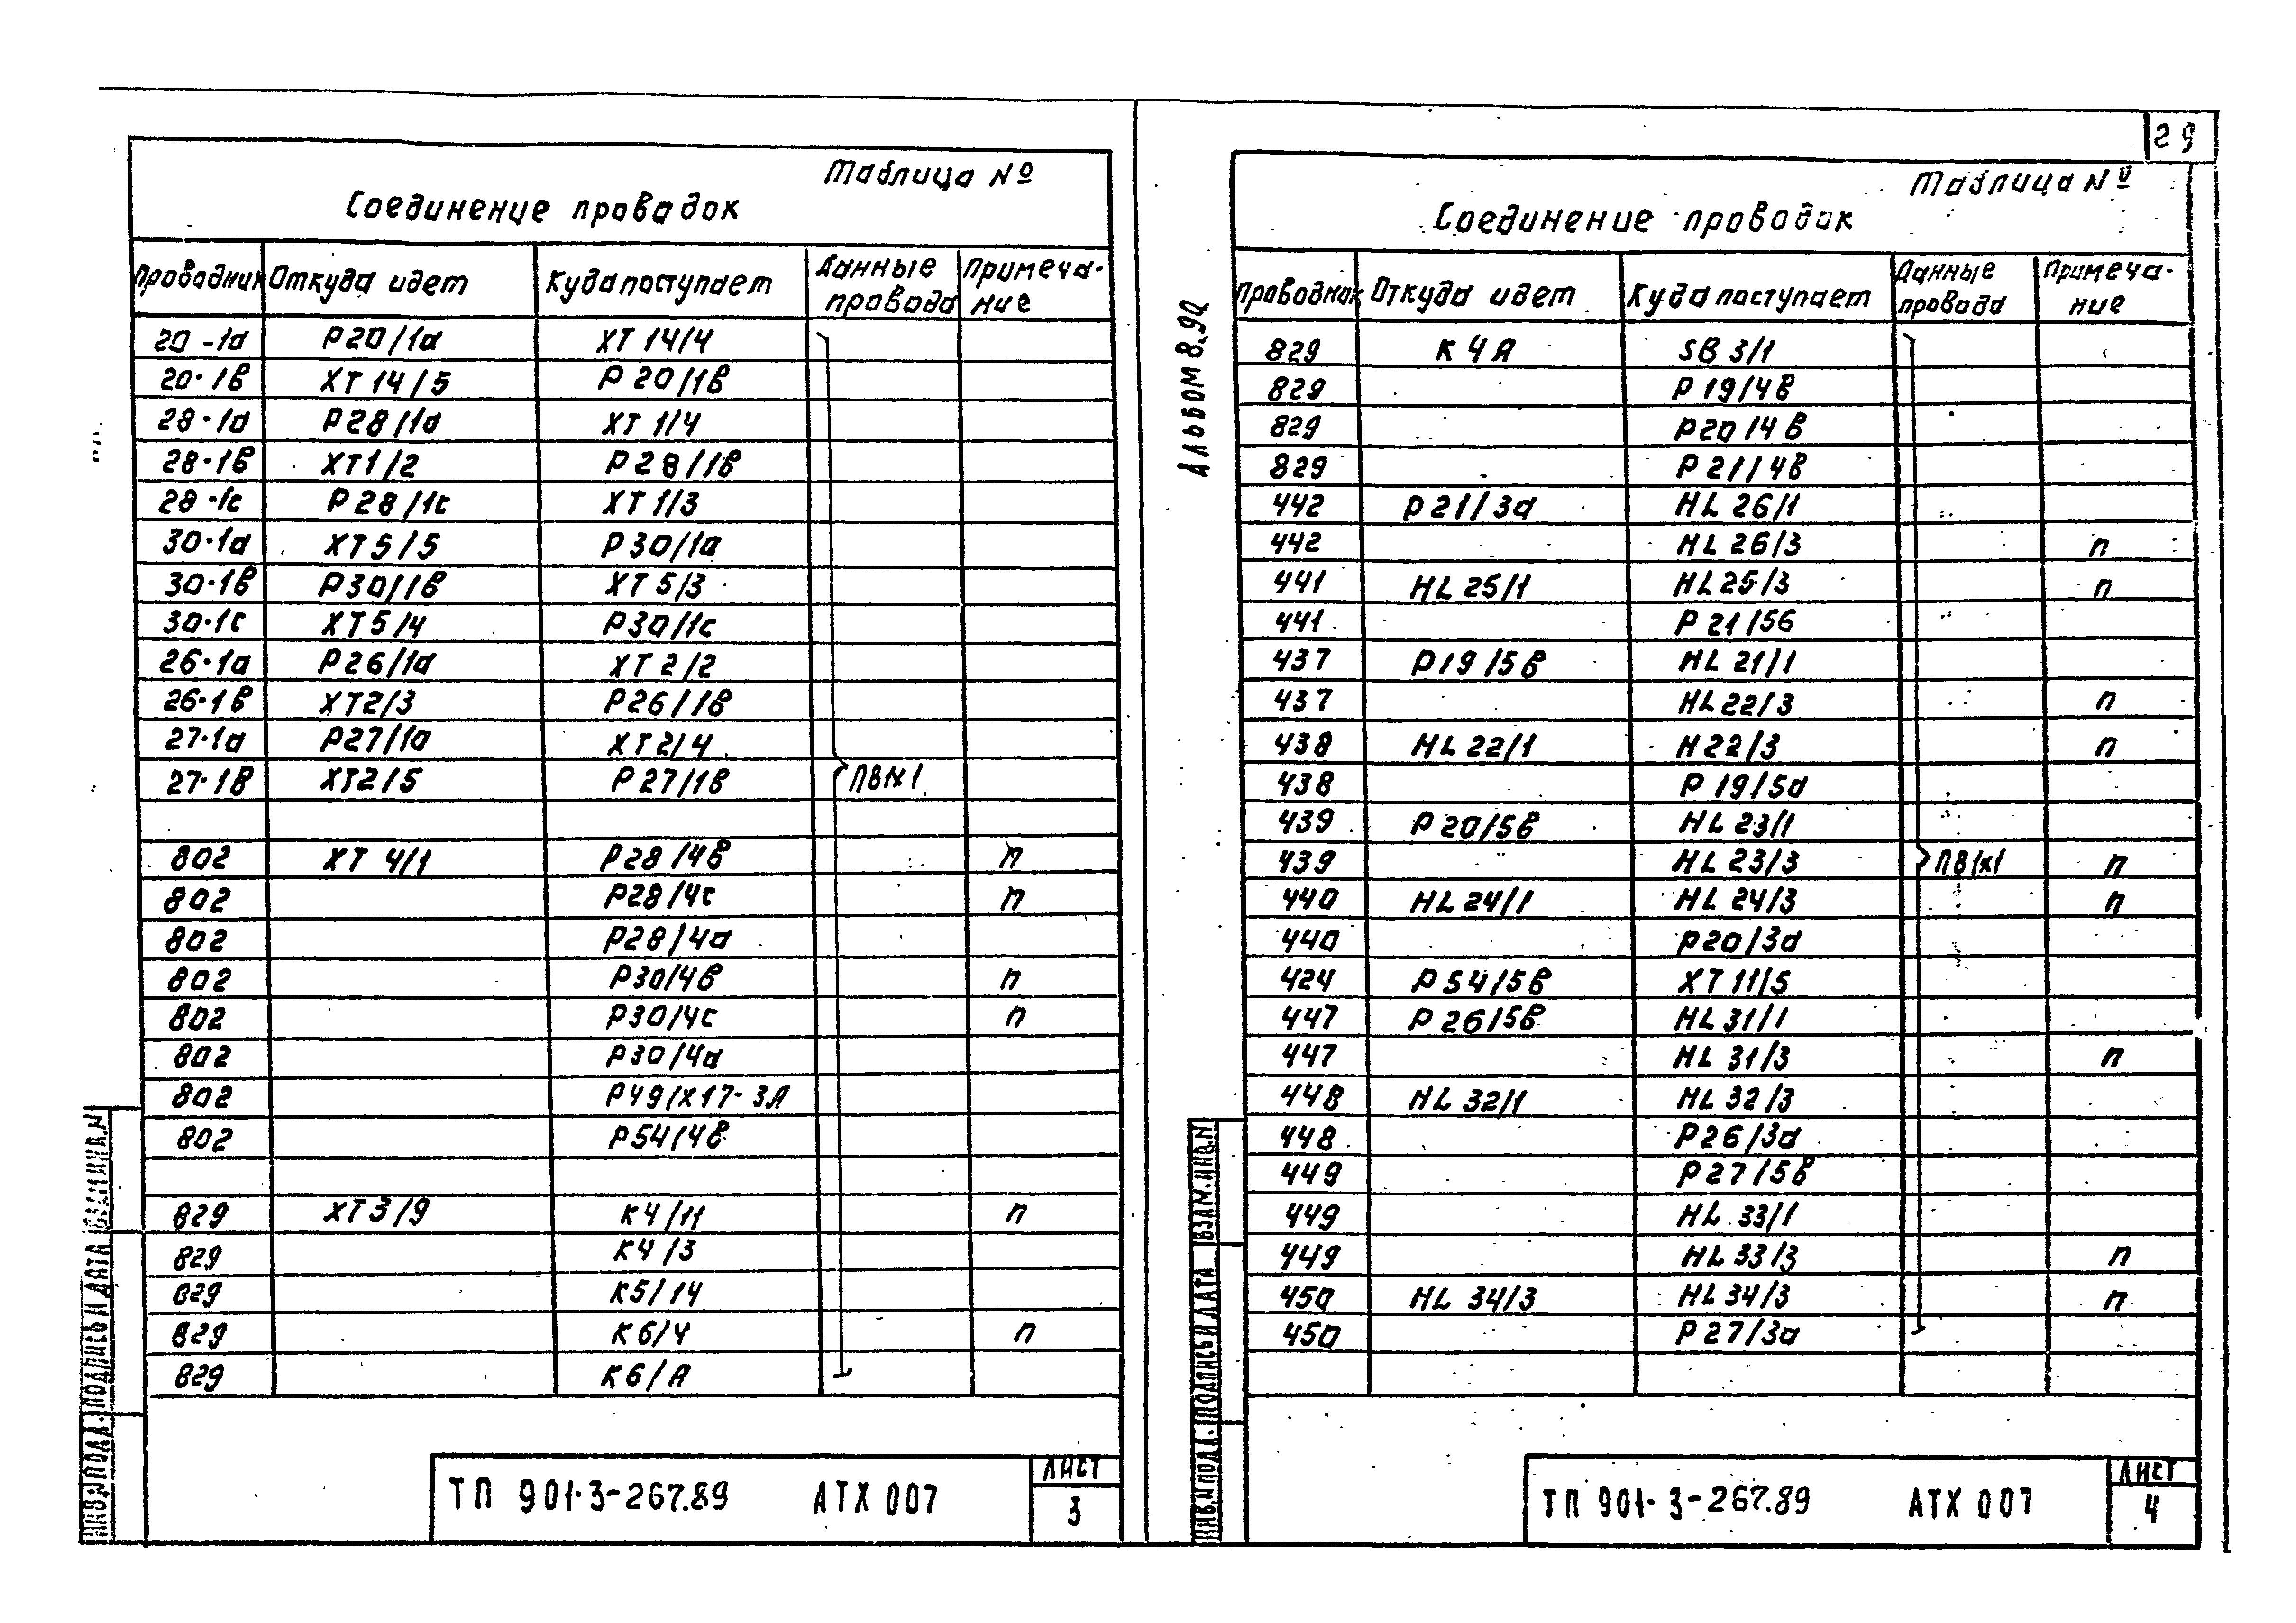 Таблица №
Соединение проводок
Проводник Откуда идет Куда поступает Данные провода Примечание
20-1а Р20/1а ХТ14/4
20-1в ХТ14/5 Р20/1в
28-1а Р28/1а ХТ1/4
28-1в ХТ1/2 Р28/1в
28-1с Р28/1с ХТ1/3
30-1а ХТ5/5 Р30/1а
30-1в Р30/1в ХТ5/3
30-1с ХТ5/4 Р30/1с
26-1а Р26/1а ХТ2/2
26-1в ХТ2/3 Р26/1в
27-1а Р27/1а ХТ2/4
27-1в ХТ2/5 Р27/1в ПВ1х1
802 ХТ4/1 Р28/4в п
802 Р28/4с п
802 Р28/4а
802 Р30/4в п
802 Р30/4с п
802 Р30/4а
802 Р49/Х17-3А
802 Р54/4в
829 ХТ3/9 К4/11 п
829 К4/3
829 К5/14
829 К6/4 п
829 К6/А
ТП 901-3-267.89 АТХ 007 ЛИСТ
3
ИНВ.№ПОДЛ. ПОДПИСЬ И ДАТА ВЗАМ.ИНВ.N
29
Альбом 8.92
Таблица №
Соединение проводок
Проводник Откуда идет Куда поступает Данные провода Примечание
829 К4А SB3/1
829 Р19/4в
829 Р20/4в
829 Р21/4в
442 Р21/3а HL26/1
442 HL26/3 п
441 HL25/1 HL25/3 п
441 Р21/5б
437 Р19/5в HL21/1
437 HL22/3 п
438 HL22/1 H22/3 п
438 Р19/5а
439 Р20/5в HL23/1
439 HL23/3 ПВ1х1 п
440 HL24/1 HL24/3 п
440 Р20/3а
424 Р54/5в ХТ11/5
447 Р26/5в HL31/1
447 HL31/3 п
448 HL32/1 HL32/3
448 Р26/3а
449 Р27/5в
449 HL33/1
449 HL33/3 п
450 HL34/3 HL34/3 п
450 Р27/3а
ТП 901-3-267.89 АТХ 007 ЛИСТ
4
ИНВ.№ПОДЛ. ПОДПИСЬ И ДАТА ВЗАМ.ИНВ.N